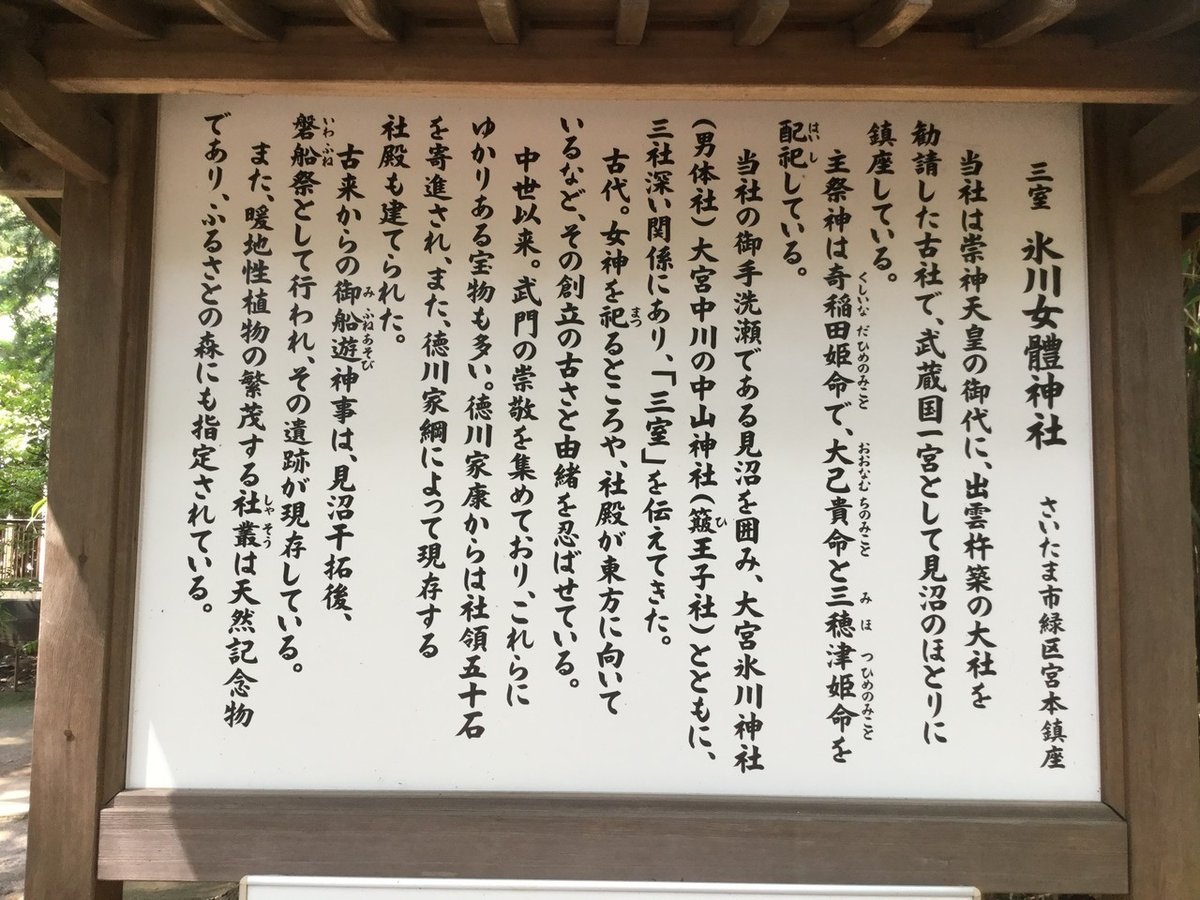 三室 氷川女體神社 さいたま市緑区宮本鎮座
当社は崇神天皇の御代に、出雲杵築の大社を
勧請した古社で、武蔵国一宮として見沼のほとりに
鎮座している。
主祭神は奇稲田姫命で、大己貴命と三穂津姫命を
くしいな だひめのみこと おおなむ ちのみこと み ほ つひめのみこと
配祀している。
はいし
当社の御手洗瀬である見沼を囲み、大宮氷川神社
(男体社)大宮中川の中山神社(簸王子社)とともに、
ひ
三社深い関係にあり、「三室」を伝えてきた。
古代。女神を祀るところや、社殿が東方に向いて
まつ
いるなど、その創立の古さと由緒を忍ばせている。
中世以来。武門の崇敬を集めており、これらに
ゆかりある宝物も多い。徳川家康からは社領五十石
を寄進され、また、徳川家綱によって現存する
社殿も建てられた。
古来からの御船遊神事は、見沼干拓後、
み ふねあそび
磐船祭として行われ、その遺跡が現存している。
いわ ふね
また、暖地性植物の繁茂する社叢は天然記念物
しゃ そう
であり、ふるさとの森にも指定されている。